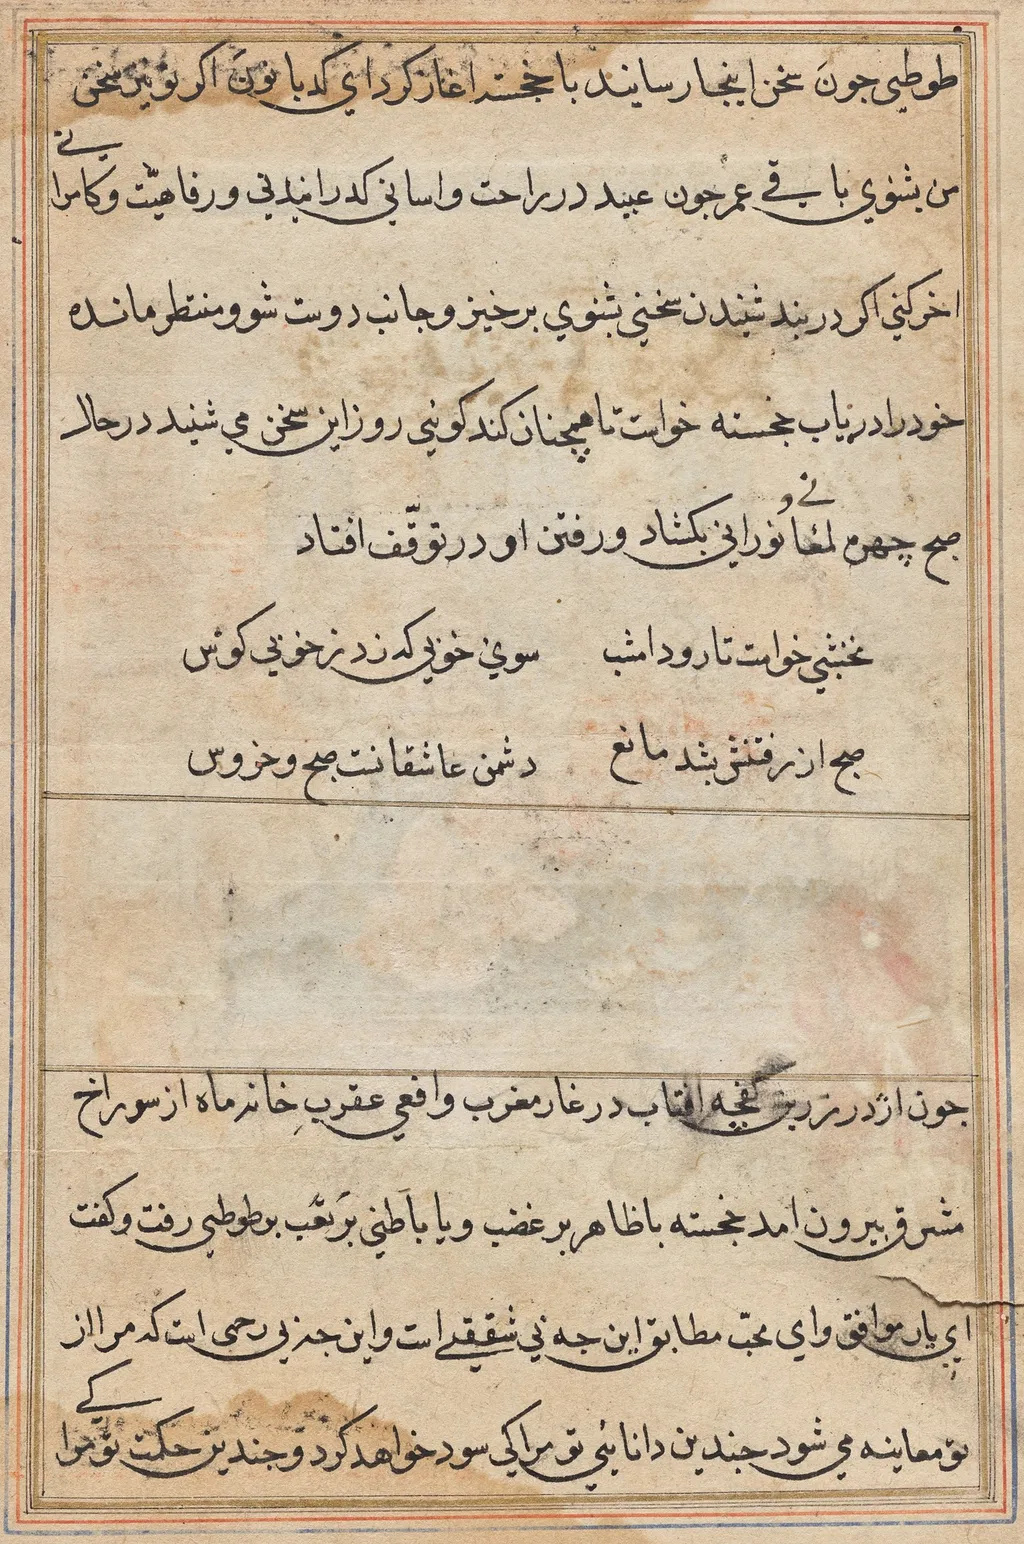 طوطی جون سخن اینجا رسانید با خجسته اغاز کرد ای کدبانون اکر تو این سخن
من بشنوی باقی عمر جون عبید در راحت و اسانی کدرانیدنی و رفاهیّت و کامرا
نی
اخر کنی اکر در بند شنیدن سخنی بشنوی برخیز و جانب دوست شو و منتظر مانده
خود را دریاب خجسته خواست تا همچنان کند کوئی روز این سخن می شنید در حال
صبح چهره لمعا نورانی بکشاد و رفتن او در توقّف افتاد
نی و
نخشبی خواست تا رود امشب سوی خوبی که زد ز خوبی کوس
صبح از رفتنش بشد مانع دشمن عاشقانت صبح و خروس
جون اژدر زرین کفچه افتاب در غار مغرب و افعی عقرب خانه ماه از سوراخ
مشرق بیرون امد خجسته با ظاهر بر غضب و با باطنی بر تعّب بر طوطی رفت و کفت
ای یار موافق و ای محبّ مطابق این جه بی شفیقے است و این جه بی رحمی است که مرا از
تو معاینه می شود جندین دانائی تو مرا کی سود خواهد کرد و جندین حکمت تو مرا
کے